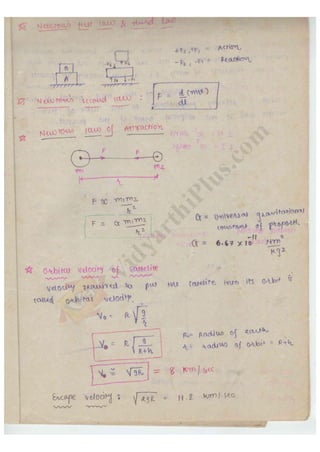 Newton's first law & third law
B
A
+F2, +F1 = Action
-F2, -F1 = Reaction
Newton's second law : F = d(mv)/dt
Newton's law of Attraction
F F
m1 m2
r
F ∝ m1m2/r²
F = G m1m2/r²
G = Universal gravitational
constant of proport
G = 6.67 × 10^-11 Nm²/kg²
Orbital velocity of Satellite
velocity required to put the satellite into its orbit is
called orbital velocity.
V0 = R √g/r
V0 = R √g/R+h
R = Radius of earth
r = radius of orbit = R+h
V0 ≅ √gR = 8 km/sec
Escape velocity : √2gR = 11.2 km/sec
VidyarthiPlus.com